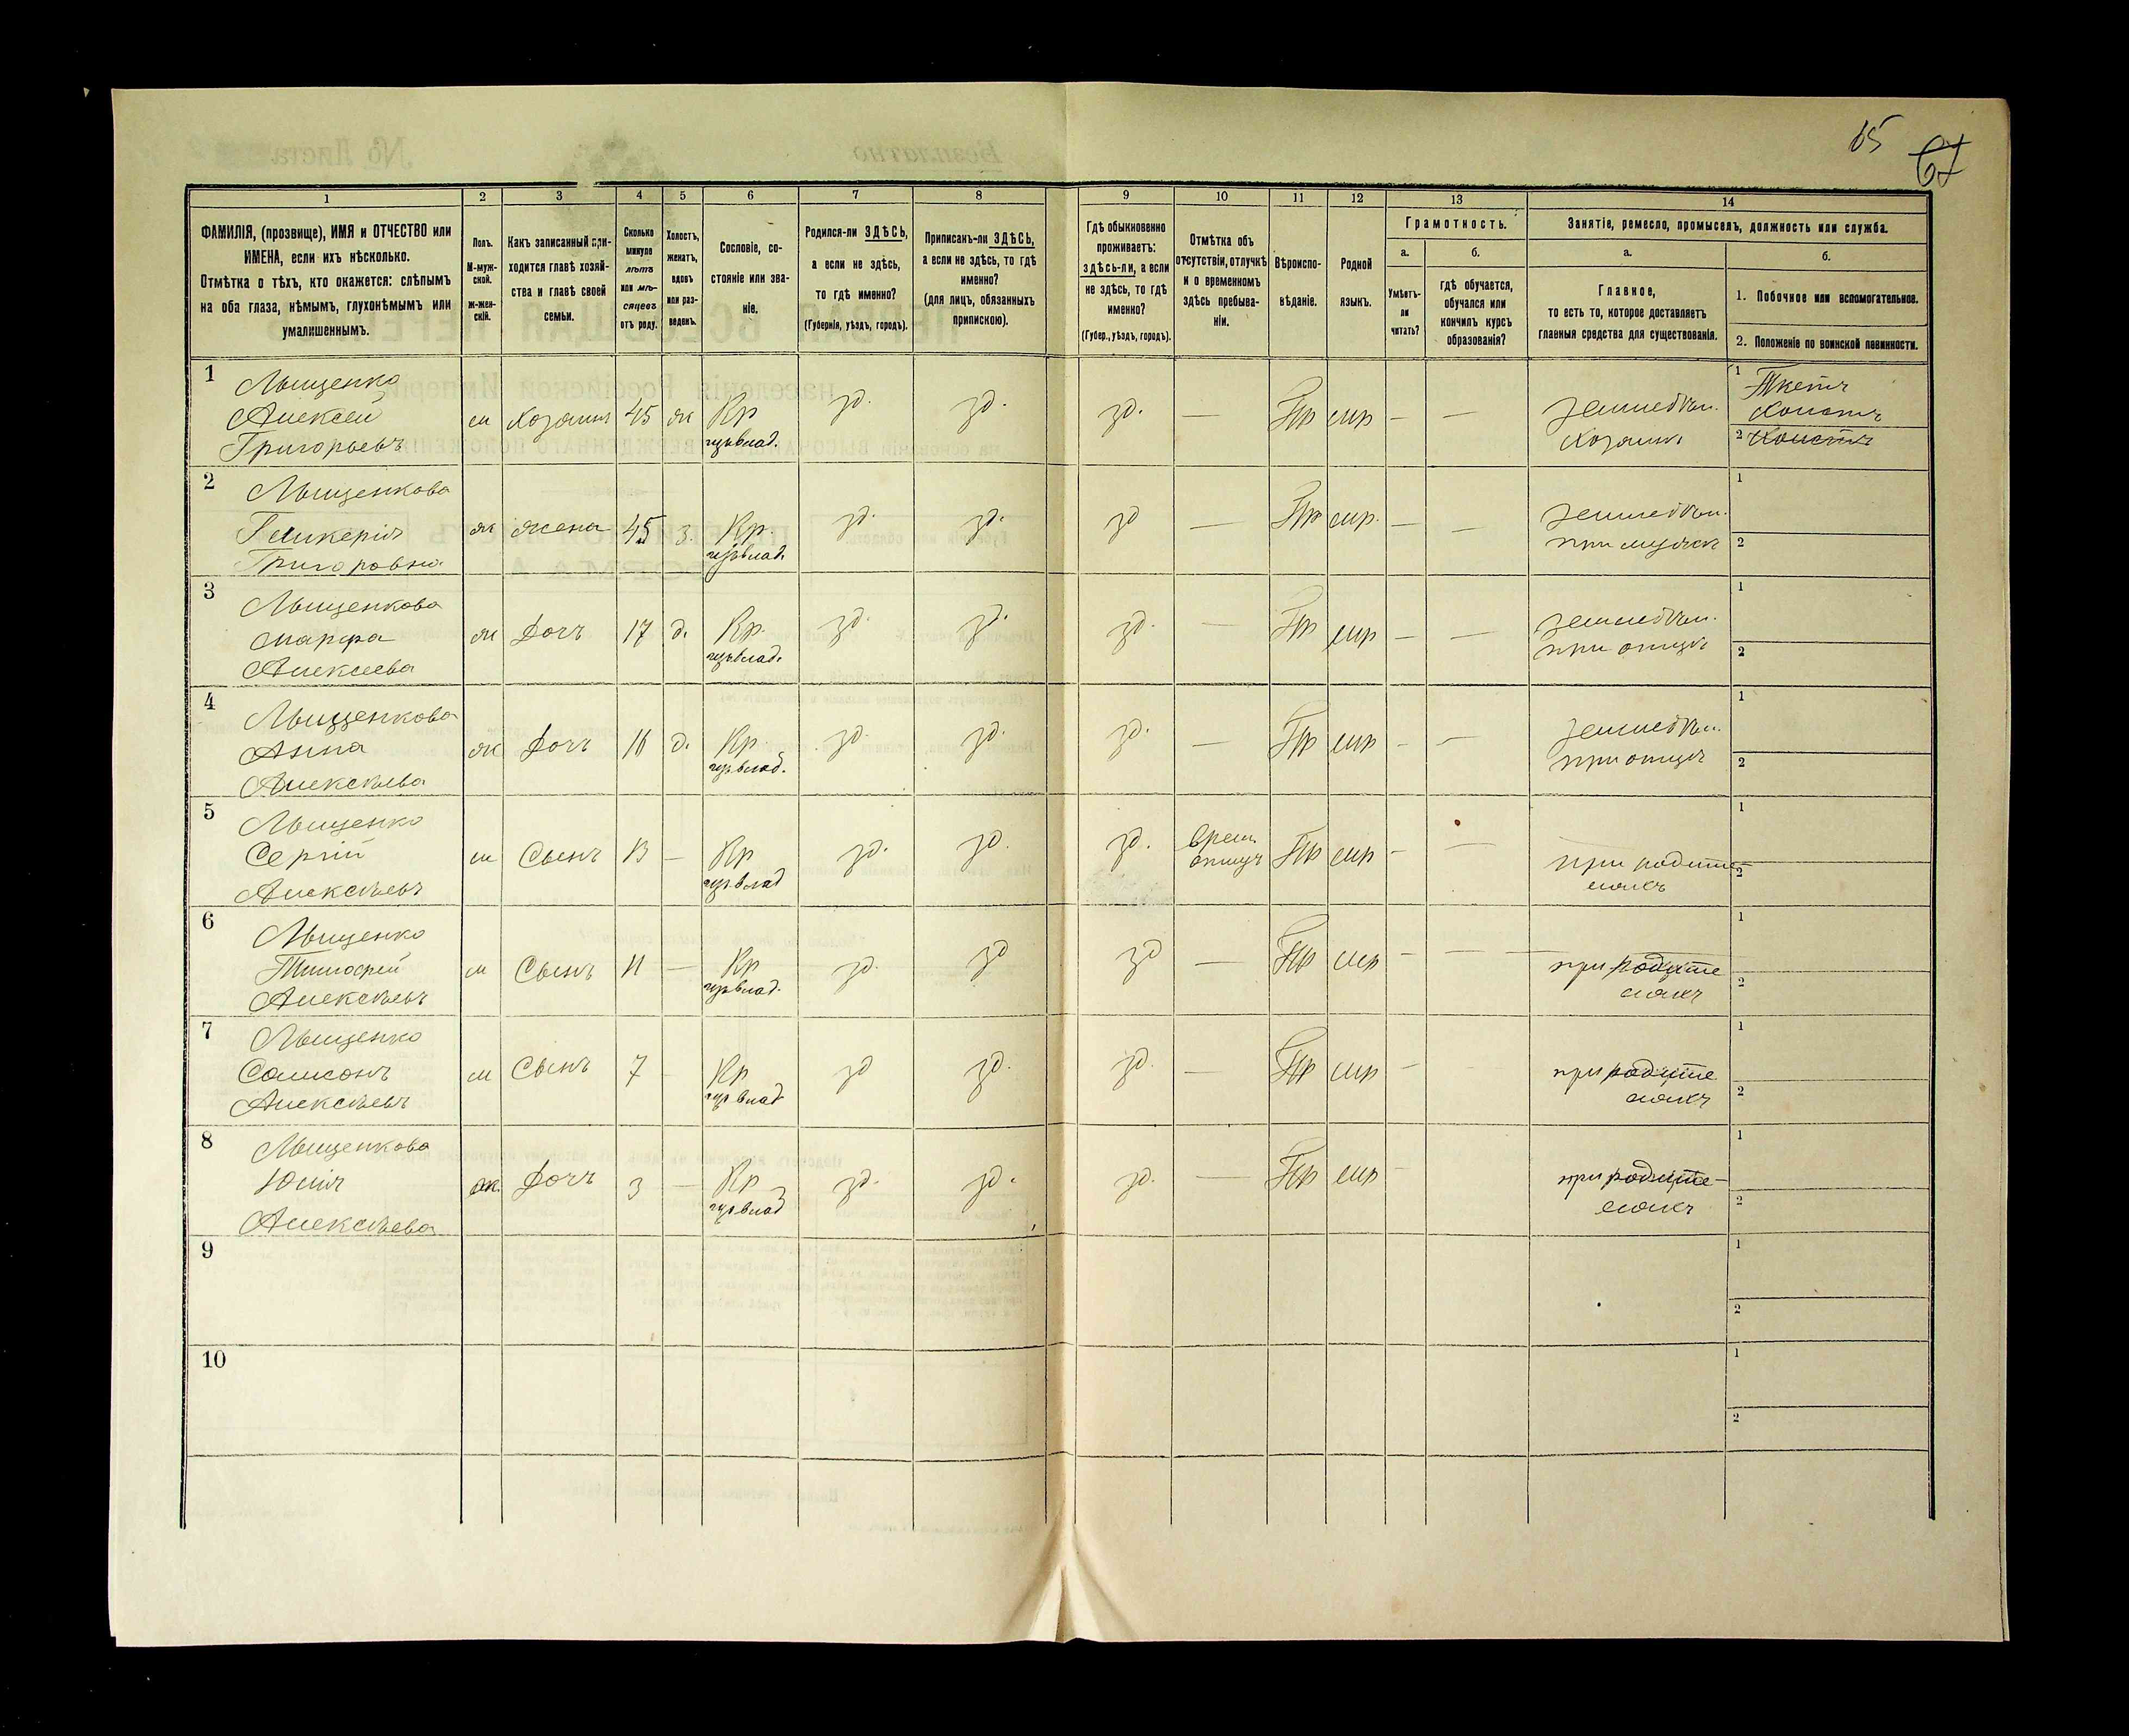 65
67
1 2 3 4 5 6 7 8 9 10 11 12 13 14
ФАМИЛІЯ, (прозвище), ИМЯ и ОТЧЕСТВО или
ИМЕНА, если ихъ нѣсколько.
Отмѣтка о тѣхъ, кто окажется: слѣпымъ
на оба глаза, нѣмымъ, глухонѣмымъ или
умалишеннымъ.
Полъ.
М-муж-
ской.
ж-жен-
скій.
Какъ записанный при-
ходится главѣ хозяй-
ства и главѣ своей
семьи.
Сколько
минуло
лѣтъ
или мѣ-
сяцевъ
отъ роду.
Холостъ,
женатъ,
вдовъ
или раз-
веденъ.
Сословіе, со-
стояніе или зва-
ніе.
Родился-ли ЗДѢСЬ,
а если не здѣсь,
то гдѣ именно?
(Губернія, уѣздъ, городъ).
Приписанъ-ли ЗДѢСЬ,
а если не здѣсь, то гдѣ
именно?
(для лицъ, обязанныхъ
припискою).
Гдѣ обыкновенно
проживаетъ:
здѣсь-ли, а если
не здѣсь, то гдѣ
именно?
(Губер., уѣздъ, городъ).
Отмѣтка объ
отсутствіи, отлучкѣ
и о временномъ
здѣсь пребыва-
ніи.
Вѣроиспо-
вѣданіе.
Родной
языкъ.
Грамотность.
а.
Умѣетъ-
ли
читать?
б.
гдѣ обучается,
обучался или
кончилъ курсъ
образованія?
Занятіе, ремесло, промыселъ, должность или служба.
а.
Главное,
то есть то, которое доставляетъ
главныя средства для существованія.
б.
1. Побочное или вспомогательное.
2. Положеніе по воинской повинности.
1
Лыщенко
Алексей
Григорьевъ
м Хозяинъ 45 ж Кр
зд. зд. зд. — Пр мр — —
земледѣл.
Хозяинъ
1
2
2
Лыщенкова
Гликерія
Григоровна
ж жена 45 з. Кр
зд. зд. зд — Пр мр. — —
земледѣл.
при мужѣ
1
2
3
Лыщенкова
Марфа
Алексеева
ж Дочь 17 д. Кр.
зд. зд. зд. — Пр мр — —
земледѣл.
при отцѣ
1
2
4
Лыщенкова
Анна
Алексѣева
ж Дочь 16 д. Кр
зд. зд. зд. — Пр мр — —
земледѣл.
при отцѣ
1
2
5
Лыщенко
Сергій
Алексѣевъ
м Сынъ 13 — Кр
зд. зд. зд.
врем.
отлуч
Пр мр — —
при родите
ляхъ
1
2
6
Лыщенко
Тимофей
Алексѣевъ
м Сынъ 11 — Кр
зд. зд зд — Пр мр — —
при родите
ляхъ
1
2
7
Лыщенко
Самсонъ
Алексѣевъ
м Сынъ 7 — Кр
зд зд. зд. — Пр мр —
при родите
ляхъ
1
2
8
Лыщенкова
Юлія
Алексѣева
ж. Дочь 3 — Кр
зд. зд. зд. — Пр мр —
при родите-
ляхъ
1
2
9
1
2
10
1
2